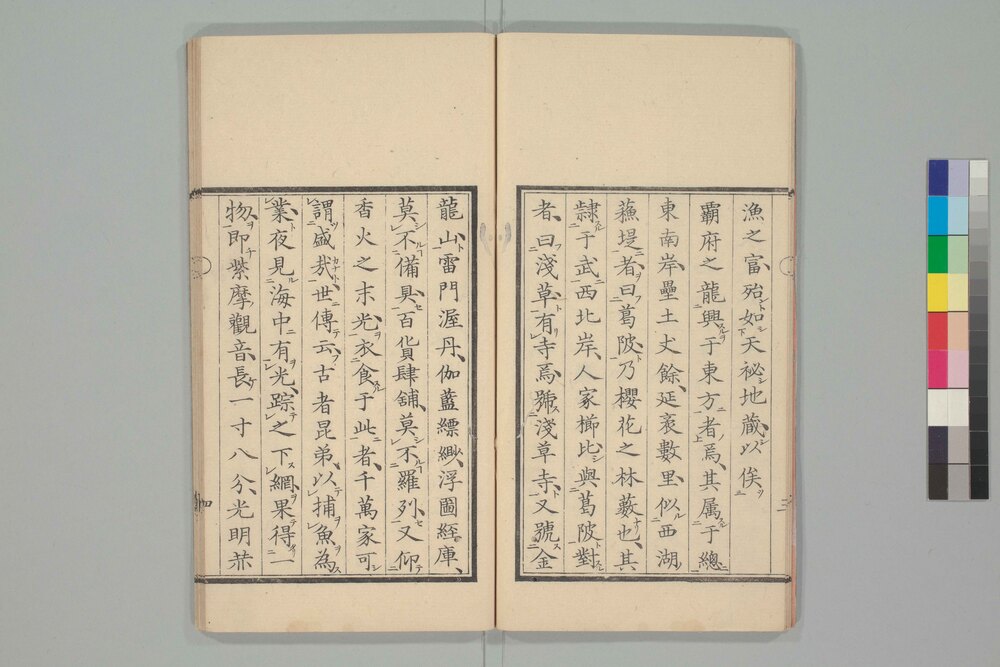 漁之富殆如天祕地蔵以俟
覇府之龍興于東方者焉其属于總
東南岸壘土丈餘延袤數里似西湖
蘓堤者曰葛陂乃櫻花之林藪也其
隸于武西北岸人家櫛比與葛陂對
者曰淺草有寺焉號淺草寺又號金
龍山雷門渥丹伽藍縹緲浮圖経庫
莫不備具百貨肆舗莫不羅列又仰
香火之末光衣食于此者千萬家可
謂盛哉世傳云古者昆弟以捕魚為
業夜見海中有光踪之下網果得一
物即紫摩觀音長一寸八分光明赫